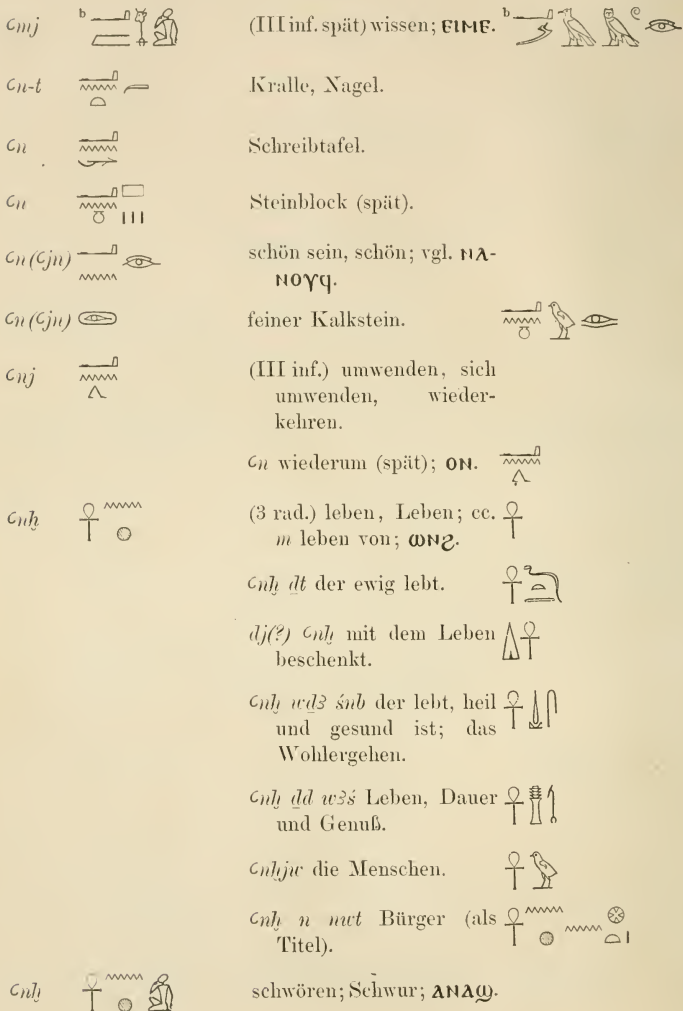 ꜥmj (III inf. spät) wissen; ⲉⲓⲙⲉ.
ꜥn-t 𓂝𓈖𓏏 Kralle, Nagel.
ꜥn 𓂝𓈖 Schreibtafel.
ꜥn 𓂝𓈖𓏌𓈙𓏥 Steinblock (spät).
ꜥn (ꜥjn) 𓂝𓈖𓁹 schön sein, schön; vgl. ⲛⲁ-
ⲛⲟⲩϥ.
ꜥn (ꜥjn) feiner Kalkstein. 𓂝𓈖𓏌𓅱
ꜥnj 𓂝𓈖𓂻 (III inf.) umwenden, sich
umwenden, wieder-
kehren.
ꜥn wiederum (spät); ⲟⲛ. 𓂝𓈖𓂻
ꜥnḫ 𓋹𓈖𓐍 (3 rad.) leben, Leben; cc. 𓋹
m leben von; ⲱⲛϩ.
ꜥnḫ ḏt der ewig lebt. 𓋹𓆓𓏏𓇾
dj(?) ꜥnḫ mit dem Leben 𓏙𓋹
beschenkt.
ꜥnḫ wḏꜣ śnb der lebt, heil 𓋹𓍑𓋴
und gesund ist; das
Wohlergehen.
ꜥnḫ ḏd wꜣś Leben, Dauer 𓋹𓊽𓌀
und Genuß.
ꜥnḫjw die Menschen. 𓋹𓅱
ꜥnḫ n nwt Bürger (als 𓋹𓈖𓐍𓈖𓊖𓏏𓏤
Titel).
ꜥnḫ 𓋹𓈖𓐍𓀁 schwören; Schwur; ⲁⲛⲁϣ.